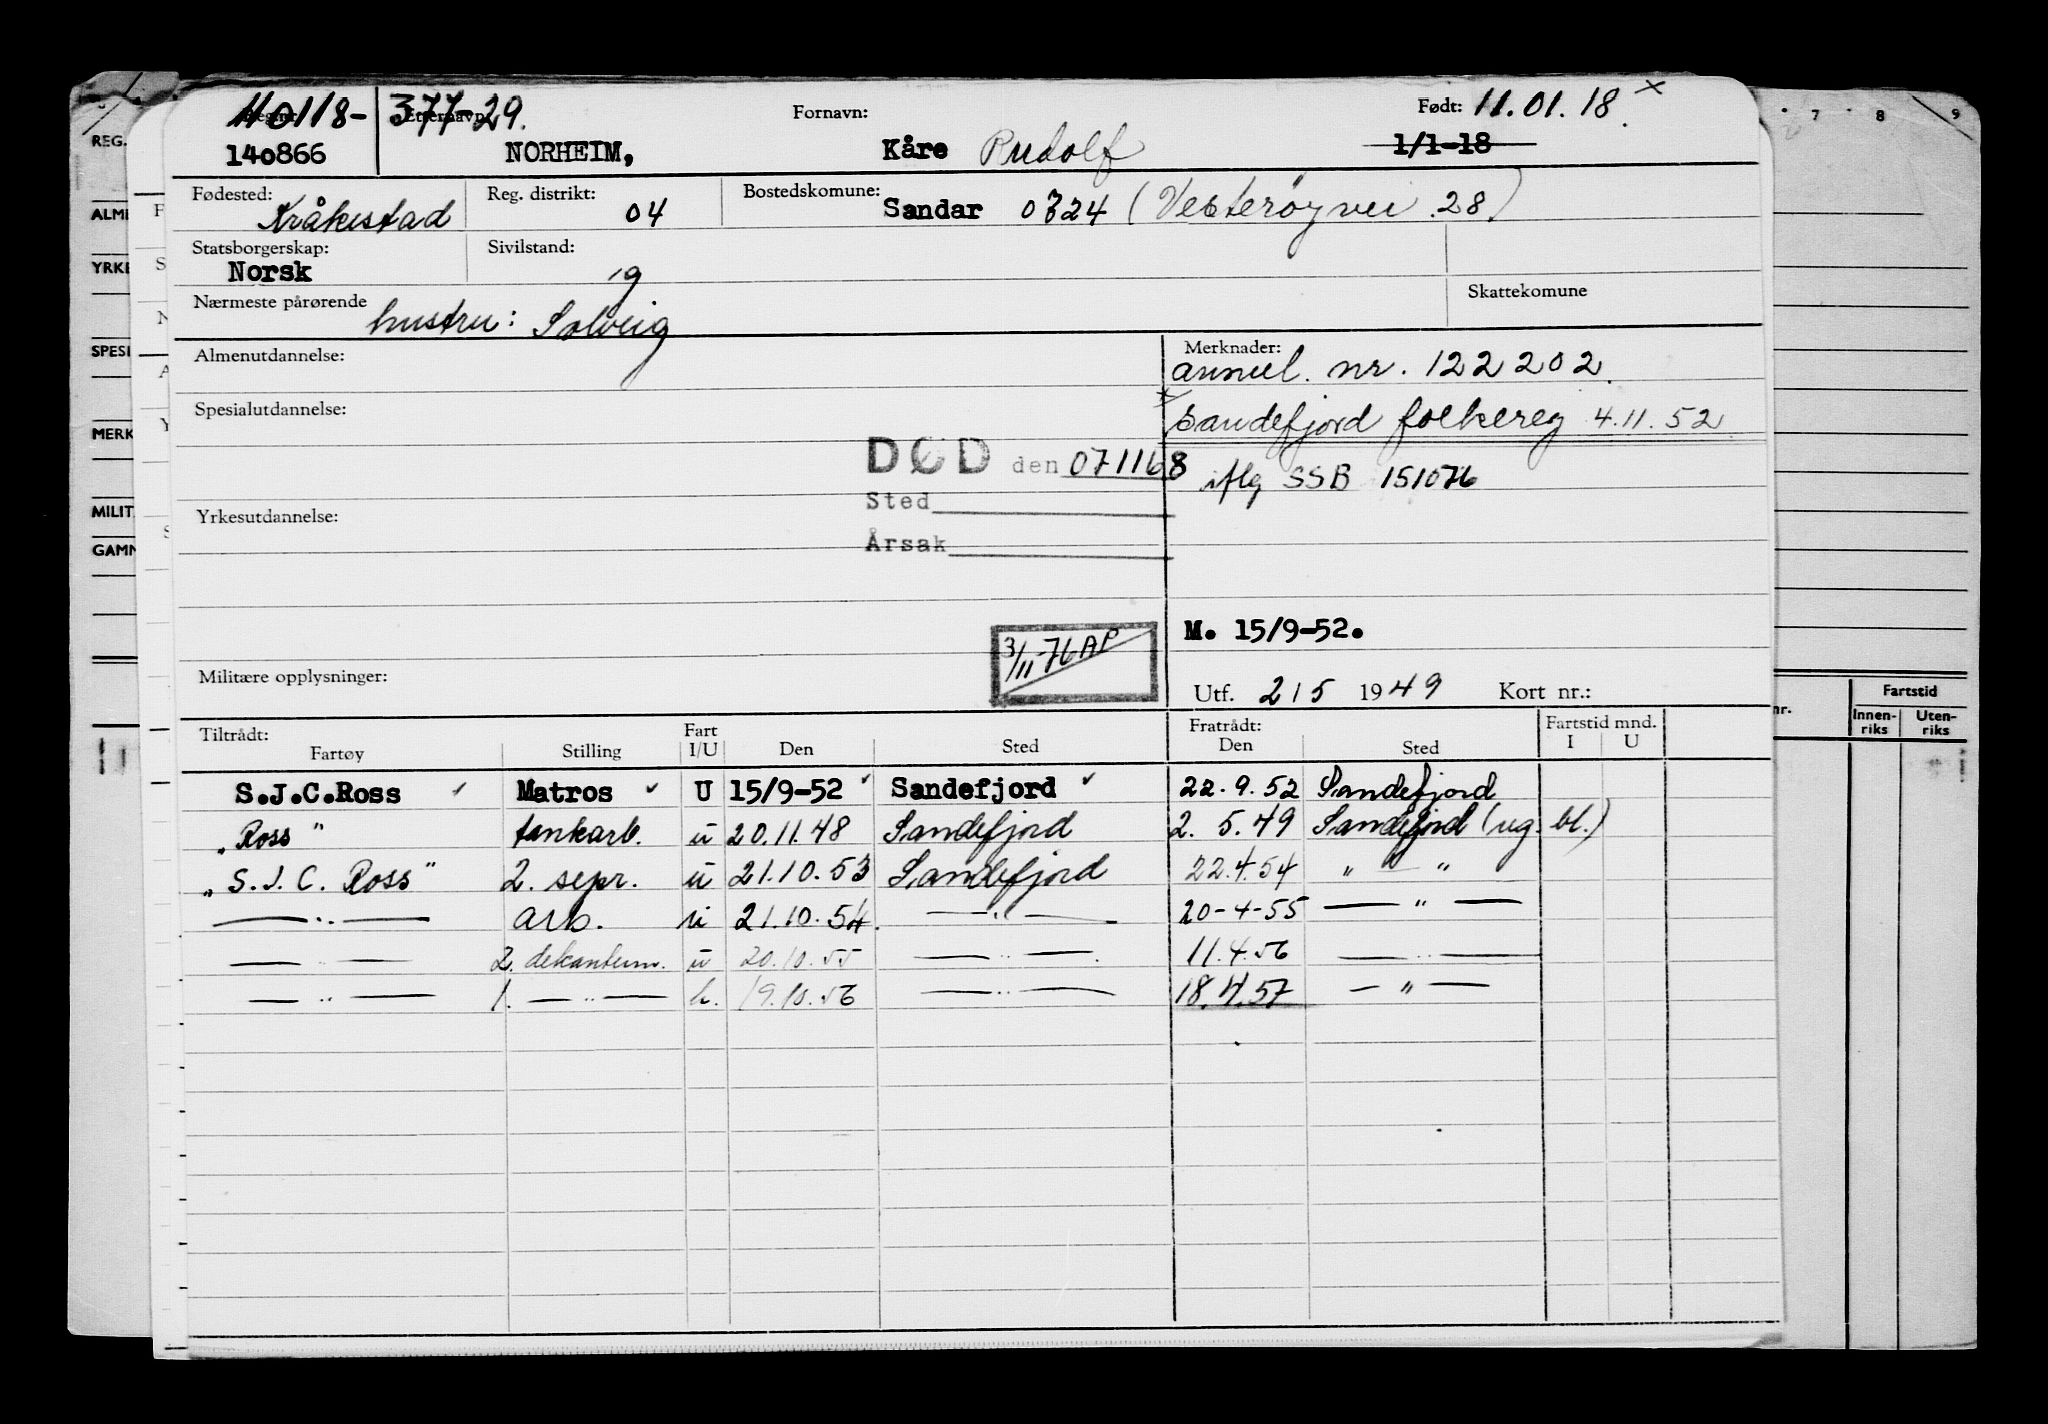 110118-37729.
Etternavn:
Fornavn:
Født: 11.01.18 x
140866 NORHEIM, Kåre Rudolf 1/1-18
Fødested: Kråkestad
Reg. distrikt: 04
Bostedskomune: Sandar 0724 (Vesterøyvei 28)
Statsborgerskap: Norsk
Sivilstand: g
Nærmeste pårørende hustru: Solveig
Skattekomune
Almenutdannelse:
Merknader: annul. nr. 122202.
Spesialutdannelse:
x Sandefjord folkereg 4.11.52
DØD den 071168
iflg SSB 151076
Sted
Yrkesutdannelse:
Årsak
M. 15/9-52.
3/11-76 AP
Militære opplysninger:
Utf. 2/5 1949 Kort nr.:
Tiltrådt: Fart Fratrådt: Fartstid mnd.
Fartøy Stilling I/U Den Sted Den Sted I U
S.J.C.Ross Matros U 15/9-52 Sandefjord 22.9.52 Sandefjord
"Ross" tankarb. u 20.11.48 Sandefjord 2.5.49 Sandefjord (reg. bl.)
"S.J.C. Ross" 2. sepr. u 21.10.53 Sandefjord 22.4.54 " — "
— " — arb. u 21.10.54. — " — 20-4-55 — " —
— " — 2. dekanterm. u 20.10.55 — " — 11.4.56 — " —
— " — 1. — " — u. 19.10.56 — " — 18.4.57 — " —
REG.
YRKE
SPESI
MERK
MILIT
GAMM
7 8 9
nr.
Fartstid
Innen-riks Uten-riks